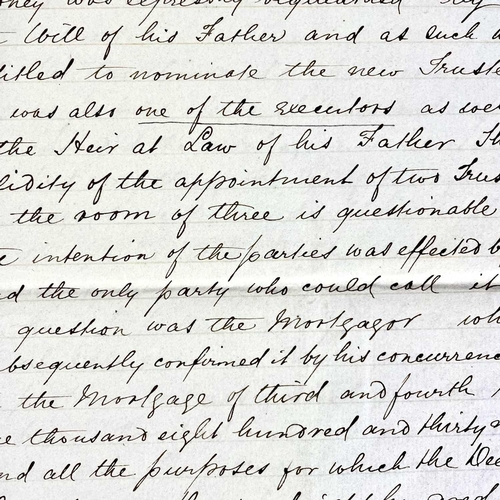 was expressly bequeathed by
Will of his Father and as such
titled to nominate the new Truste
was also one of the executors as wel
the Heir at Law of his Father Th
lidity of the appointment of two Trus
the room of three is questionable
e intention of the parties was effected b
nd the only party who could call it
question was the Mortgagor wh
bsequently confirmed it by his concurrenc
the Mortgage of third and fourth
e thousand eight hundred and thirty
nd all the purposes for which the Dee